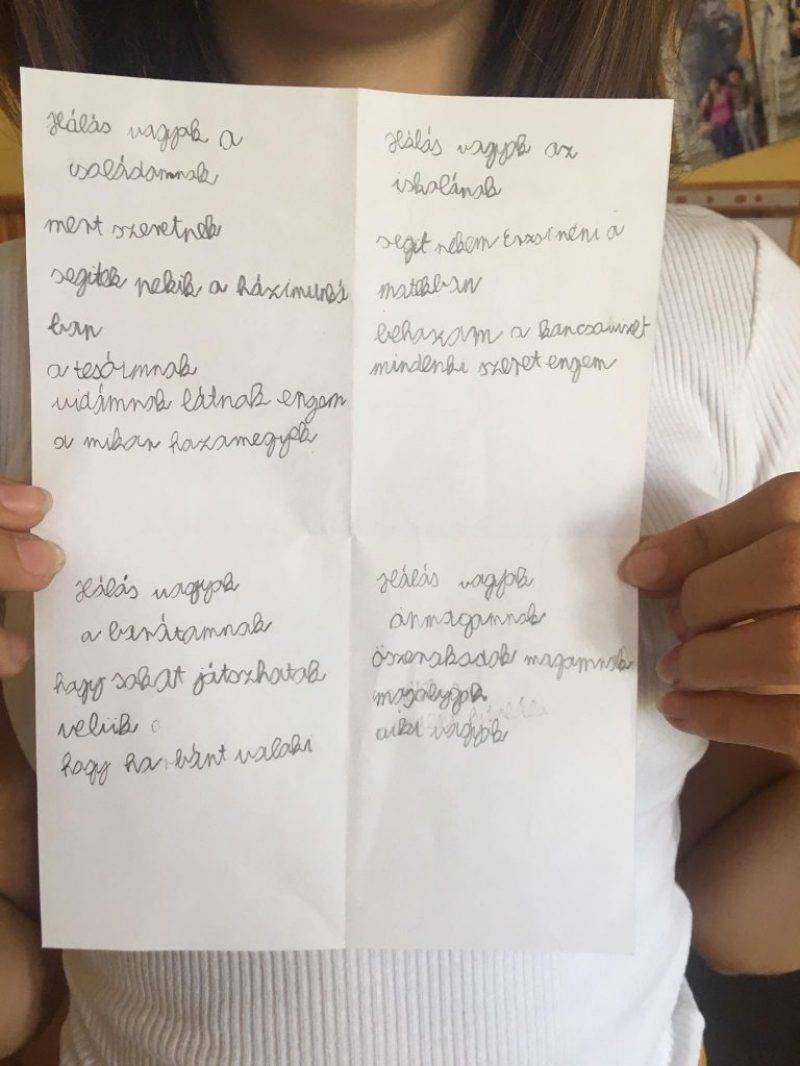 Hálás vagyok a
családamnak
mert szeretnek
segitek nekik a házimunká
ban
a tesóimnak
vidámnak látnak engem
a mikor hazamegyek
Hálás vagyok az
iskolának
segit nekem Erzsi néni a
matekban
behozom a
mindenki szeret engem
Hálás vagyok
a barátamnak
hogy sokat játszhatok
velük
hogy ha bánt valaki
Hálás vagyok
önmagamnak
magamnak
vagyok